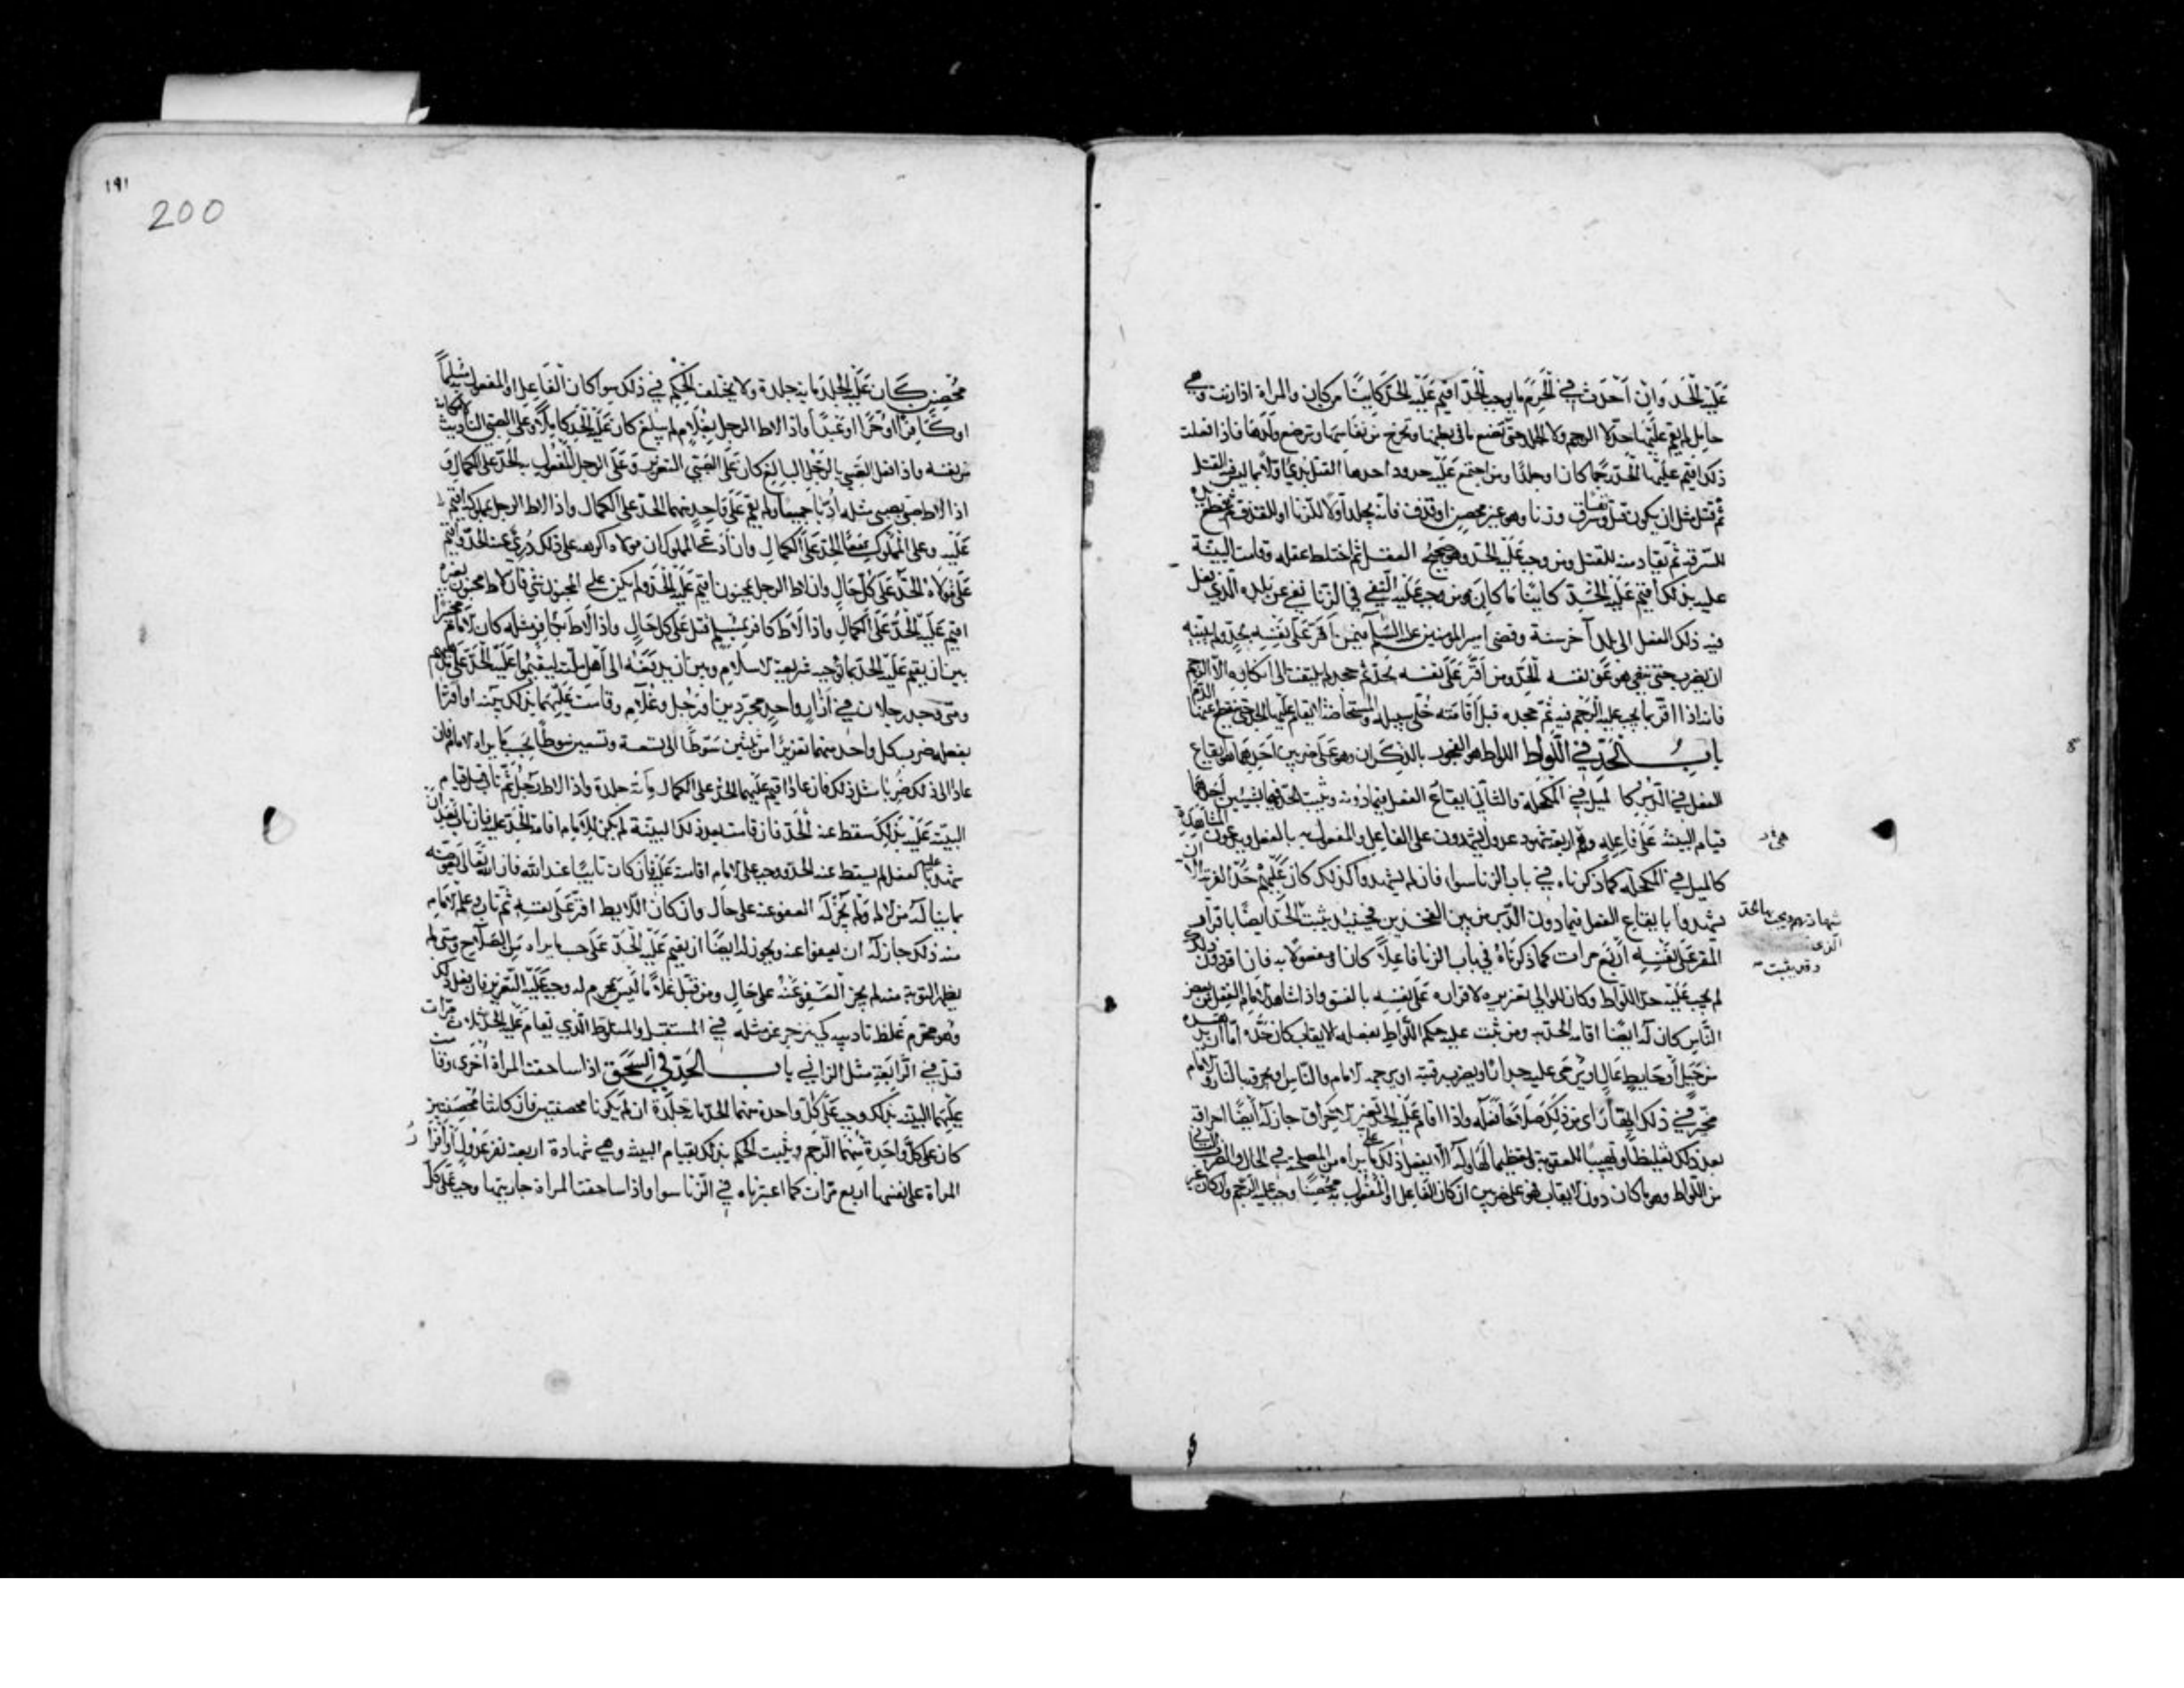 عَلَيْهِ الْحَدَّ وَاِنْ اَحْدَثَ فِي الْحَرَمِ مَا يوجب الْحَدَّ اقيم عَلَيْهِ الحَدّ كَايِنًا من كان والمراة اذا زنت وهي
حامِل لم يقم عليها حد لا الرجم ولا الجلد حتى تضع ما في بطنها وتخرج من نفاسها وترضع ولدها فاذا فعلت
ذلك اقيم عليها الحد رجما كان او جلدا ومن اجتمع عليه حدود احدها القتل بدئ اولا بما ليس فيه القتل
ثم قتل مثل ان يكون قتل وسرق وزنا وهو غير محصن او قذف فانه يجلد اولا للزنا او للقذف ثم تقطع يده
للسرقة ثم يقاد منه للقتل ومن وجب عليه الحد وهو صحيح العقل ثم اختلط عقله وقامت البينة
عليه بذلك اقيم عليه الحد كائنا ما كان ومن وجب عليه النفي في الزنا نفي عن بلده الذي فعل
فيه ذلك الفعل الى بلد آخر سنة وقضى امير المؤمنين عليه السلام فيمن اقر على نفسه بحد ولم يبينه
ان يضرب حتى ينهى هو عن نفسه الحد ومن اقر على نفسه بحد ثم جحد لم يلتفت الى انكاره الا الرجم
فانه اذا اقر بما يجب عليه الرجم فيه ثم جحده قبل اقامته خلي سبيله والمستحاضة لا يقام عليها الحد حتى ينقطع عنها الدم
باب الحَدِّ في اللواط اللواط هو الفجور بالذكران وهو على ضربين احدهما هو ايقاع
الفعل في الدبر كالميل في المكحلة والثاني ايقاع الفعل فيما دونه ويثبت الحد فيهما بشيئين احدهما
قيام البينة على فاعله وهم اربعة شهود عدول يشهدون على الفاعل والمفعول به بالفعل ويدعون المشاهدة
كالميل في المكحلة كما ذكرناه في باب الزنا سوا فان لم يشهدوا كذلك كان عليهم حد الفرية الا ان
يشهدوا بايقاع الفعل فيما دون الدبر من بين الفخذين فحينئذ يثبت الحد ايضا باقرار
المقر على نفسه اربع مرات كما ذكرناه في باب الزنا فاعلا كان او مفعولا به فان اقر دون ذلك
لم يجب عليه حد اللواط وكان للوالي تعزيره لاقراره على نفسه بالفسق واذا شاهد الامام الفعل من بعض
الناس كان له ايضا اقامة الحد به ومن ثبت عليه حكم اللواط بفعله الايقاب كان حده اما ان يدهده
من جبل او حايط عال او يرمى عليه جدار او يضرب رقبته او يرجمه الامام والناس او يحرقه بالنار والامام
مخير في ذلك ايها رأى من ذلك صلاحا فعله واذا اقام عليه الحد بغير الاحراق جاز له ايضا احراقه
بعد ذلك تغليظا وتهييبا للعقوبة وتعظيما لها وله الا يفعل ذلك على ما يراه من المصلحة في الحال والضرب الثاني
من اللواط وهو ما كان دون الايقاب فهو على ضربين ان كان الفاعل او المفعول به محصنا وجب عليه الرجم وان كان غير
شهادتهم ويجب بها الحد
الذي
وقد يثبت
١٩١
200
مُحْصِنٍ كَانَ عَلَيْهِ الْجَلد مايه جلدة ولا يختلف الحكم في ذلك سوا كان الفاعل او المفعول به مسلما
او كافرا او حرا او عبدا واذا لاط الرجل بغلام لم يبلغ كان عليه الحد كاملا وعلى الصبي التاديب لامكانه
من نفسه واذا فعل الصبي بالرجل البالغ كان على الصبي التعزير وعلى الرجل المفعول به الحد على الكمال و
اذا لاط صبي بصبي مثله ادبا جميعا ولم يقم على واحد منهما الحد على الكمال واذا لاط الرجل بمملوكه اقيم
عليه وعلى المملوك معا الحد على الكمال وان ادعى المملوك ان مولاه اكرهه على ذلك درئ عنه الحد واقيم
على مولاه الحد على كل حال وان لاط الرجل بمجنون اقيم عليه الحد ولم يكن على المجنون شي فان لاط مجنون بغيره
اقيم عليه الحد على الكمال واذا لاط كافر بمسلم قتل على كل حال واذا لاط بكافر مثله كان الامام مخيرا
بين ان يقيم عليه الحد بما توجبه شريعة الاسلام وبين ان يدفعه الى اهل ملته ليقيموا عليه الحد على مذهبهم
ومتى وجد رجلان في ازار واحد مجردين او رجل وغلام وقامت عليهما بذلك بينة او اقرا
بفعله ضرب كل واحد منهما تعزيرا من ثلثين سوطا الى تسعة وتسعين سوطا بحسب ما يراه الامام فان
عادا الى ذلك ضربا مثل ذلك فان عادا اقيم عليهما الحد على الكمال مائة جلدة واذا لاط رجل ثم تاب قبل قيام
البينة عليه بذلك سقط عنه الحد فان قامت بعد ذلك البينة لم يكن للامام اقامة الحد عليه فان تاب بعد ان
شهد عليه بالفعل لم يسقط عنه الحد ووجب على الامام اقامته عليه فان كان تايبا عند الله فان الله تعالى يعوضه
بما يناله من الالم ولم يجز له العفو عنه على حال وان كان اللايط اقر على نفسه ثم تاب وعلم الامام
منه ذلك جاز له ان يعفوا عنه ويجوز له ايضا ان يقيم عليه الحد على حسب ما يراه من الصلاح ومتى لم
يظهر التوبة منه لم يجز العفو عنه على حال ومن قبل غلاما ليس بمحرم له وجب عليه التعزير فان فعل ذلك
وهو محرم غلظ تاديبه كي ينزجر عن مثله في المستقبل والمتلوط الذي يقام عليه الحد ثلاث مرات
قتل في الرابعة مثل الزاني باب الحد في السحق اذا ساحقت المراة اخرى وقامت
عليهما البينة بذلك وجب على كل واحدة منهما الحد ماية جلدة ان لم يكونا محصنتين فان كانتا محصنتين
كان على كل واحدة منهما الرجم ويثبت الحكم بذلك بقيام البينة وهي شهادة اربعة نفر عدول او اقرار
المراة على نفسها اربع مرات كما اعتبرناه في الزنا سوا واذا ساحقت المراة جاريتها وجب على كل